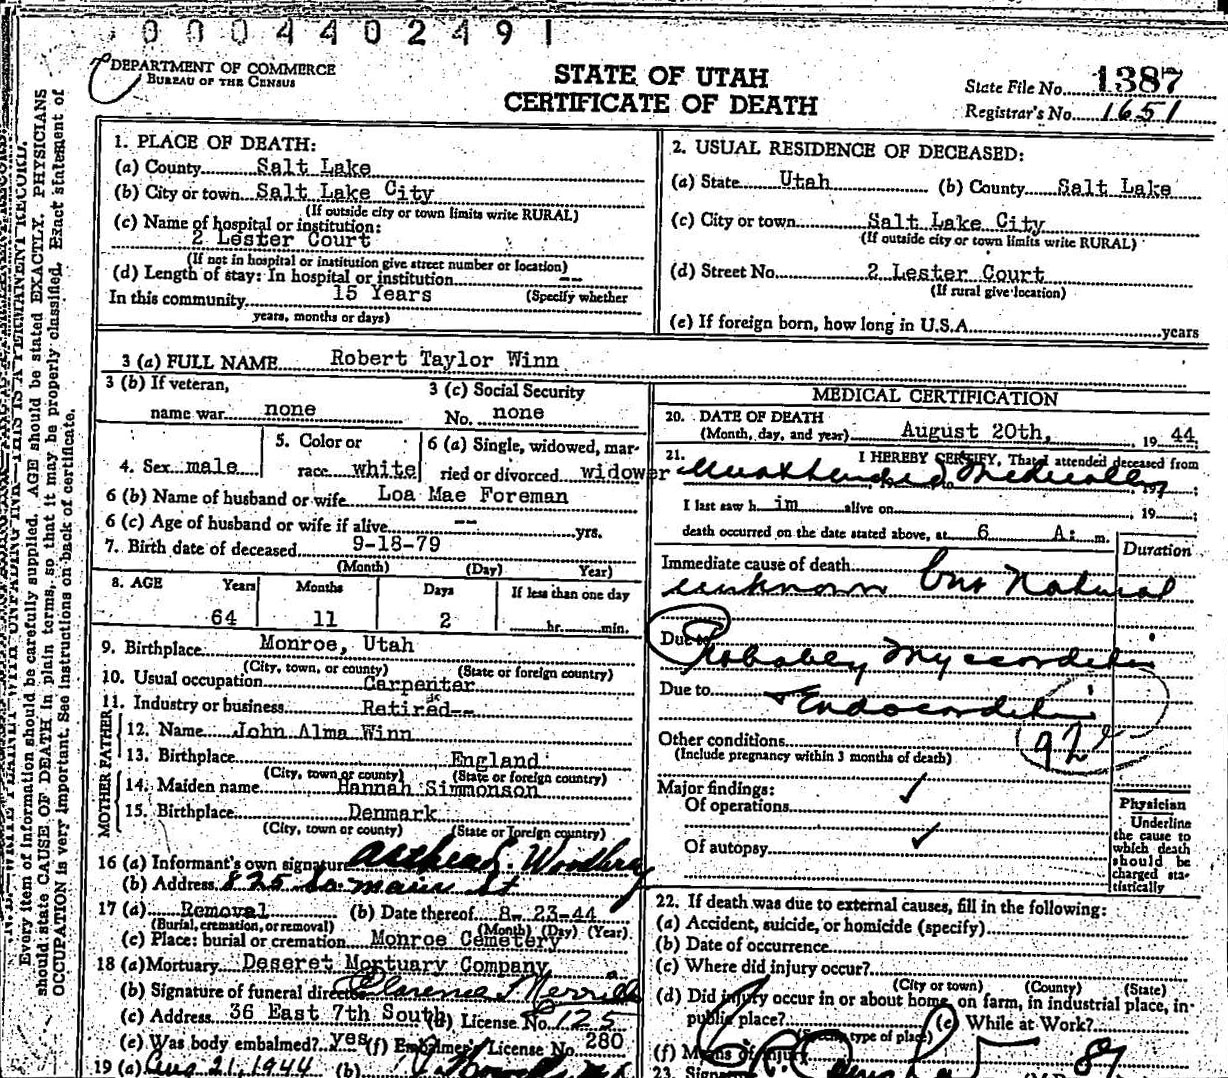 0004402491
DEPARTMENT OF COMMERCE
BUREAU OF THE CENSUS
STATE OF UTAH
CERTIFICATE OF DEATH
State File No. 1387
Registrar's No. 1651
Every item of information should be carefully supplied. AGE should be stated EXACTLY. PHYSICIANS
should state CAUSE OF DEATH in plain terms, so that it may be properly classified. Exact statement of
OCCUPATION is very important. See instructions on back of certificate.
1. PLACE OF DEATH:
(a) County Salt Lake
(b) City or town Salt Lake City
(If outside city or town limits write RURAL)
(c) Name of hospital or institution:
2 Lester Court
(If not in hospital or institution give street number or location)
(d) Length of stay: In hospital or institution --
In this community 15 Years (Specify whether
years, months or days)
2. USUAL RESIDENCE OF DECEASED:
(a) State Utah (b) County Salt Lake
(c) City or town Salt Lake City
(If outside city or town limits write RURAL)
(d) Street No. 2 Lester Court
(If rural give location)
(e) If foreign born, how long in U.S.A. years
3 (a) FULL NAME Robert Taylor Winn
3 (b) If veteran,
name war none
3 (c) Social Security
No. none
4. Sex male
5. Color or
race white
6 (a) Single, widowed, mar-
ried or divorced widower
6 (b) Name of husband or wife Loa Mae Foreman
6 (c) Age of husband or wife if alive -- yrs.
7. Birth date of deceased 9-18-79
(Month) (Day) Year)
8. AGE Years Months Days If less than one day
64 11 2 hr. min.
9. Birthplace Monroe, Utah
(City, town, or county) (State or foreign country)
10. Usual occupation Carpenter
11. Industry or business Retired--
FATHER
12. Name John Alma Winn
13. Birthplace England
(City, town or county) (State or foreign country)
MOTHER
14. Maiden name Hannah Simmonson
15. Birthplace Denmark
(City, town or county) (State or foreign country)
16 (a) Informant's own signature
(b) Address 825 So. Main St
17 (a) Removal (b) Date thereof 8-23-44
(Burial, cremation, or removal) (Month) (Day) (Year)
(c) Place: burial or cremation Monroe Cemetery
18 (a) Mortuary Deseret Mortuary Company
(b) Signature of funeral director Clarence Merrill
(c) Address 36 East 7th South (d) License No. 125
(e) Was body embalmed? yes (f) Embalmer's License No. 280
19 (a) Aug 21, 1944 (b)
MEDICAL CERTIFICATION
20. DATE OF DEATH
(Month, day, and year) August 20th, 19 44
21. I HEREBY CERTIFY, That I attended deceased from
Unattended Medically 19
I last saw h im alive on , 19
death occurred on the date stated above, at 6 A. m.
Duration
Immediate cause of death
unknown but Natural
Due to
Probably Myocarditis
Due to
& Endocarditis
92
Other conditions
(Include pregnancy within 3 months of death)
Major findings:
Of operations ✓
Of autopsy ✓
Physician
Underline
the cause to
which death
should be
charged sta-
tistically
22. If death was due to external causes, fill in the following:
(a) Accident, suicide, or homicide (specify)
(b) Date of occurrence
(c) Where did injury occur?
(City or town) (County) (State)
(d) Did injury occur in or about home, on farm, in industrial place, in
public place? (e) While at Work?
(Specify type of place)
(f) Means of injury
23. Signature